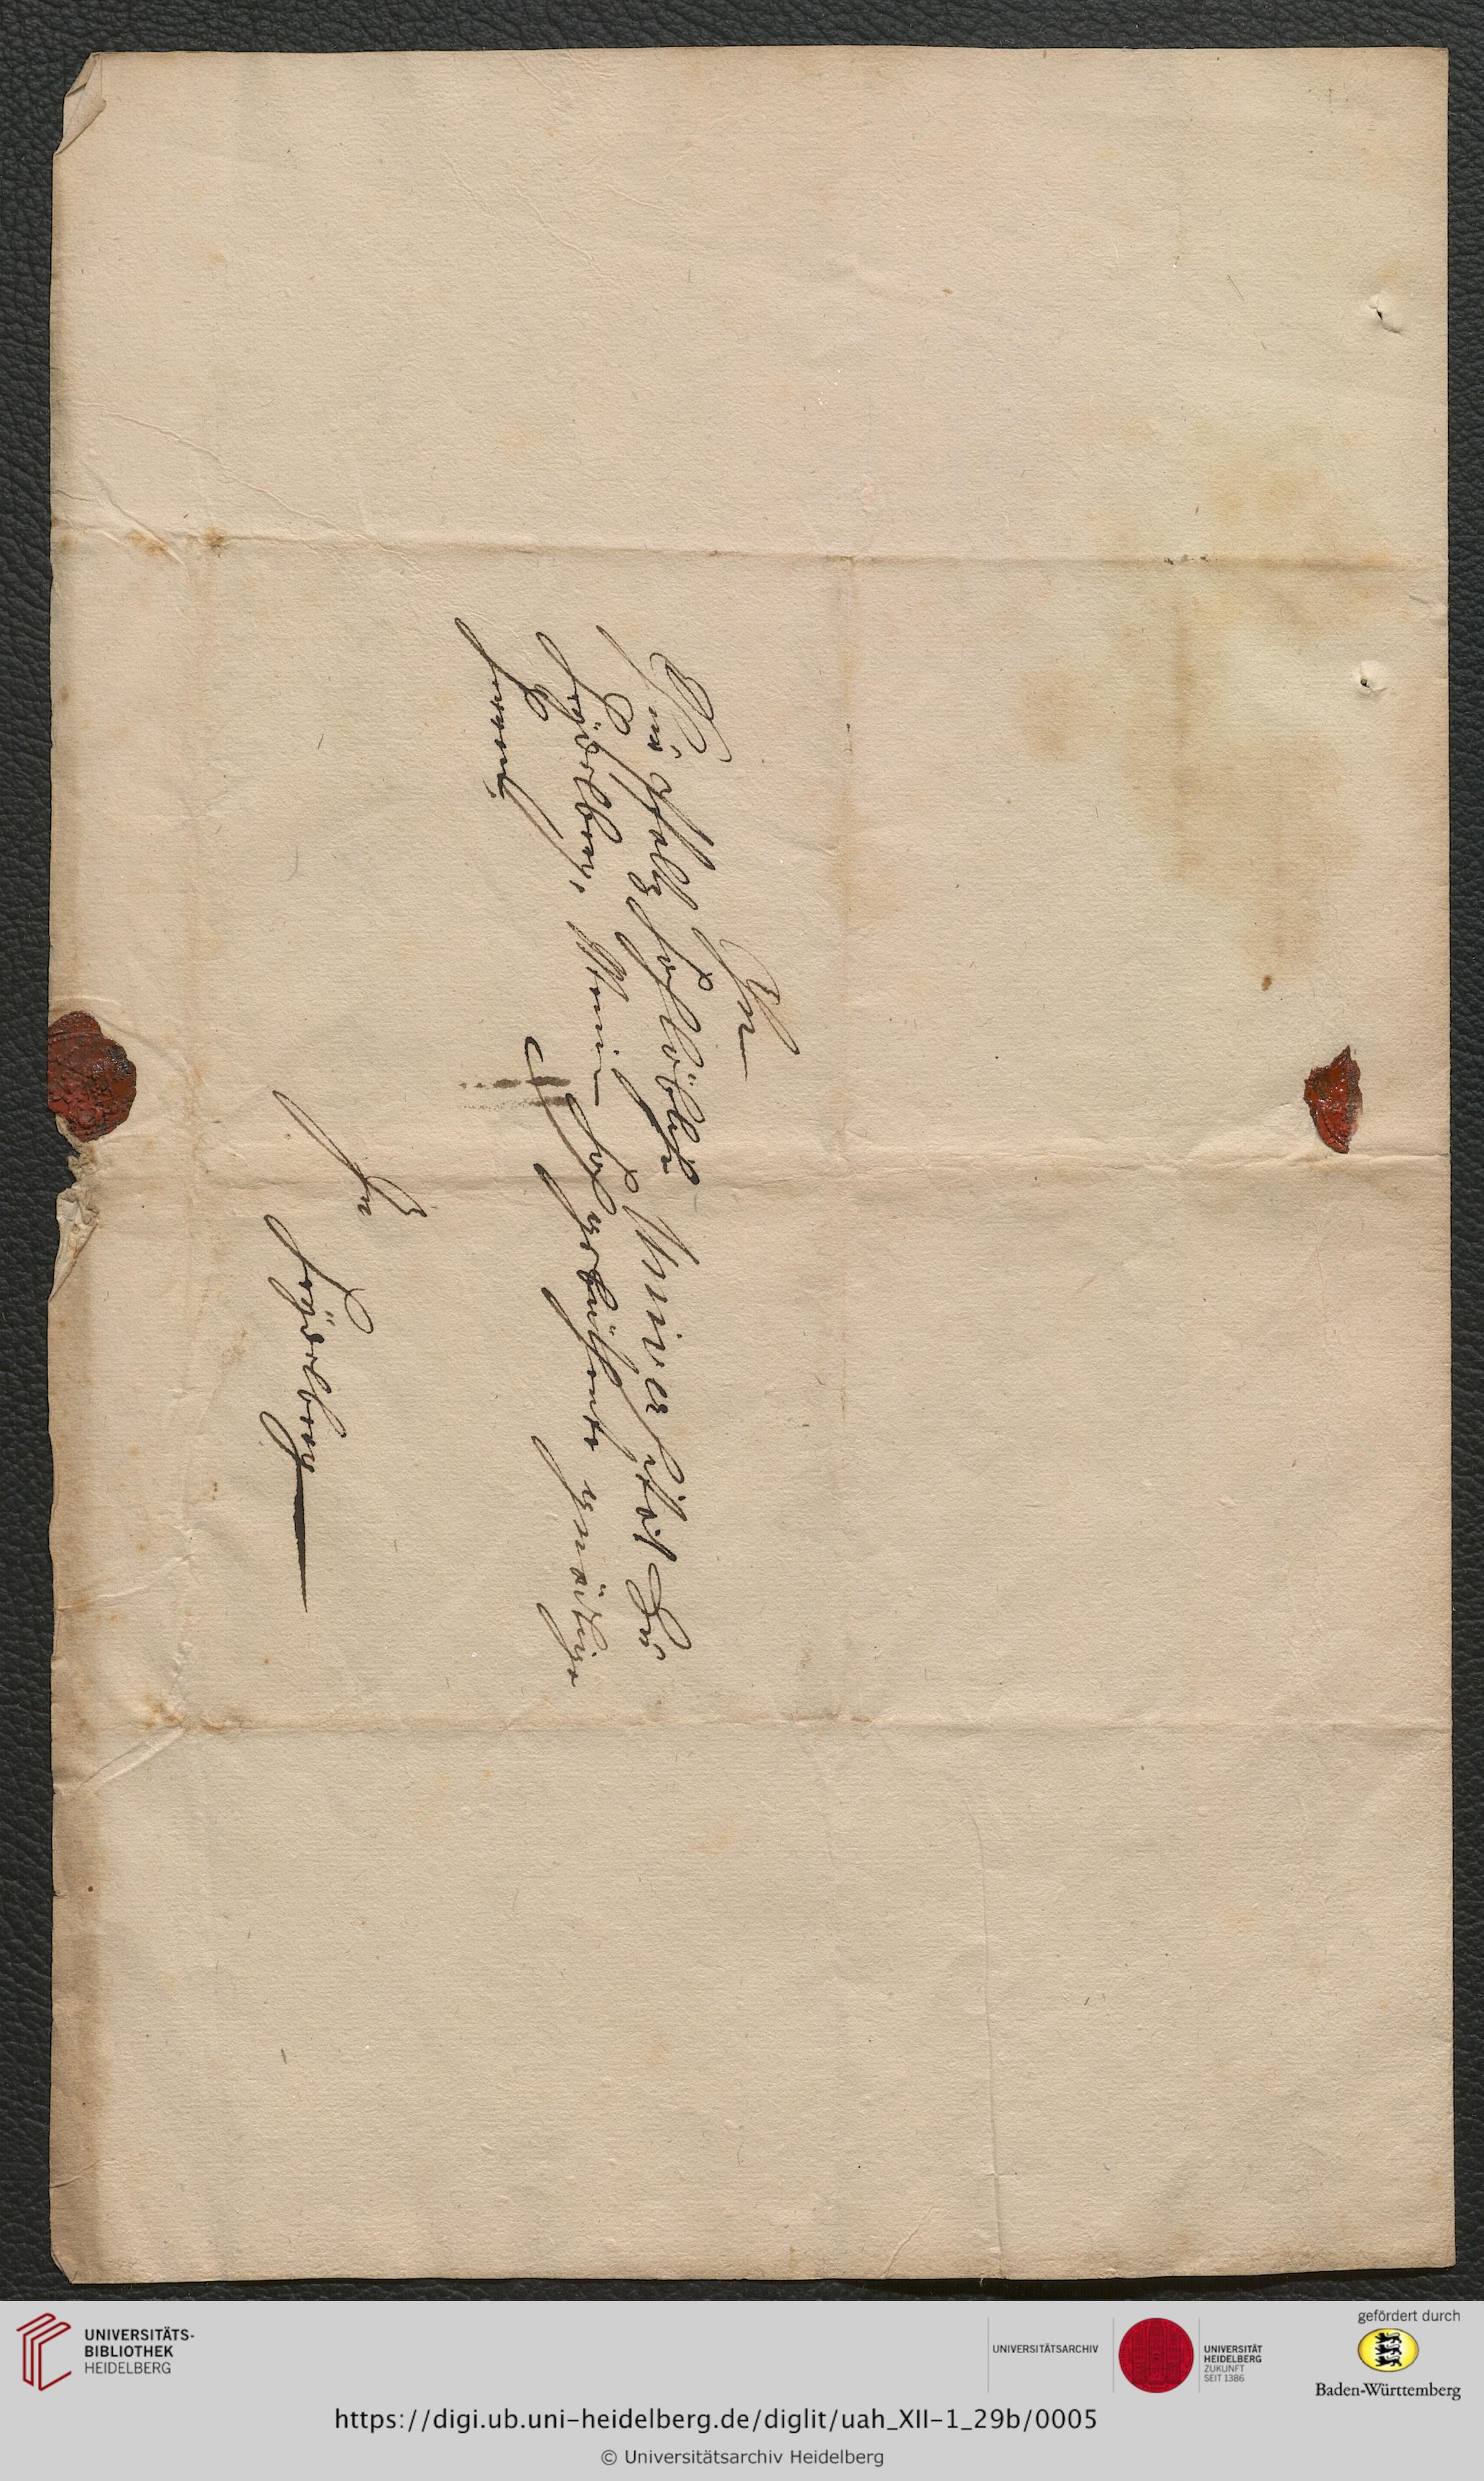 An
Ein Hochlöbliche Universität zu
Heÿdelberg, Meine Hochgebüthente gnädige
Herren
In
Heÿdelberg
UNIVERSITÄTS-
BIBLIOTHEK
HEIDELBERG
UNIVERSITÄTSARCHIV
UNIVERSITÄT
HEIDELBERG
ZUKUNFT
SEIT 1386
gefördert durch
Baden-Württemberg
https://digi.ub.uni-heidelberg.de/diglit/uah_XII-1_29b/0005
© Universitätsarchiv Heidelberg